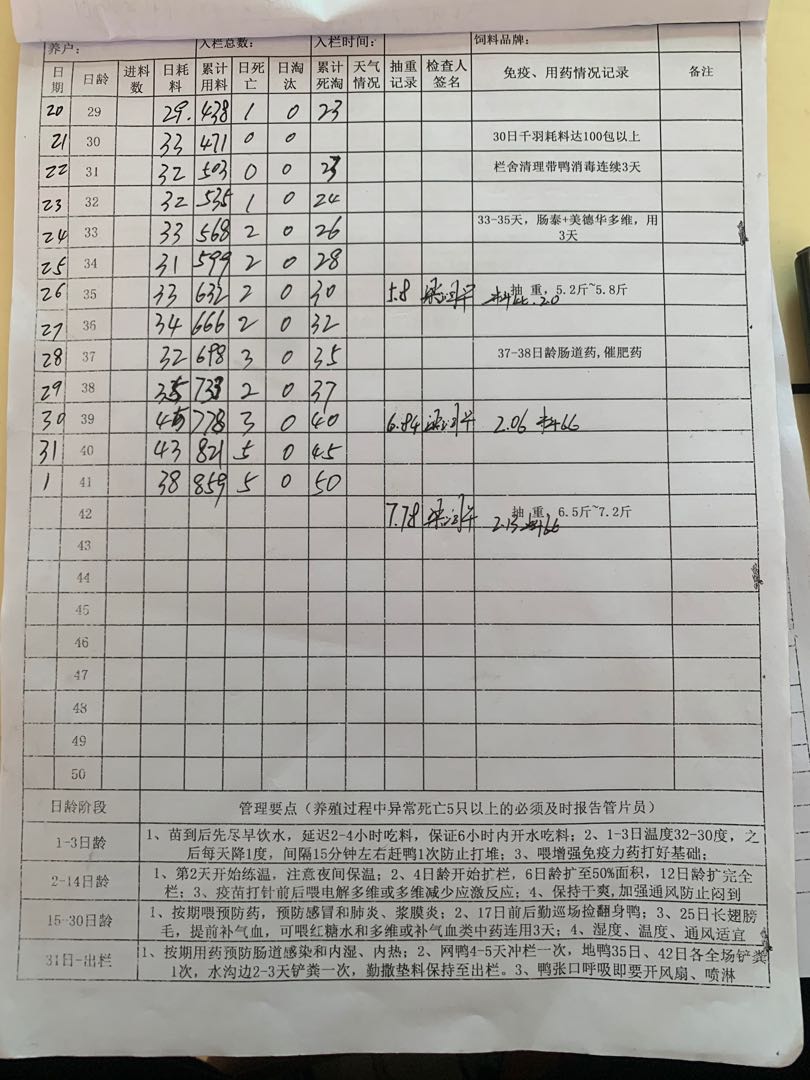 养户： 入栏总数： 入栏时间： 饲料品牌：
日期 日龄 进料数 日耗料 累计用料 日死亡 日淘汰 累计死淘 天气情况 抽重记录 检查人签名 免疫、用药情况记录 备注
20 29 29. 438 1 0 23
21 30 33 471 0 0 30日千羽耗料达100包以上
22 31 32 503 0 0 23 栏舍清理带鸭消毒连续3天
23 32 32 535 1 0 24
24 33 33 568 2 0 26 33-35天，肠泰+美德华多维，用3天
25 34 31 599 2 0 28
26 35 33 632 2 0 30 5.8 抽 重，5.2斤~5.8斤
27 36 34 666 2 0 32
28 37 32 698 3 0 35 37-38日龄肠道药,催肥药
29 38 35 733 2 0 37
30 39 45 778 3 0 40 6.84 2.06 料466
31 40 43 821 5 0 45
1 41 38 859 5 0 50
42 7.78 抽 重 6.5斤~7.2斤
43
44
45
46
47
48
49
50
日龄阶段 管理要点（养殖过程中异常死亡5只以上的必须及时报告管片员）
1-3日龄 1、苗到后先尽早饮水，延迟2-4小时吃料，保证6小时内开水吃料；2、1-3日温度32-30度，之
后每天降1度，间隔15分钟左右赶鸭1次防止打堆；3、喂增强免疫力药打好基础；
2-14日龄 1、第2天开始练温，注意夜间保温；2、4日龄开始扩栏，6日龄扩至50%面积，12日龄扩完全
栏；3、疫苗打针前后喂电解多维或多维减少应激反应；4、保持干爽,加强通风防止闷到
15-30日龄 1、按期喂预防药，预防感冒和肺炎、浆膜炎；2、17日前后勤巡场捡翻身鸭；3、25日长翅膀
毛，提前补气血，可喂红糖水和多维或补气血类中药连用3天；4、湿度、温度、通风适宜
31日-出栏 1、按期用药预防肠道感染和内湿、内热；2、网鸭4-5天冲栏一次，地鸭35日、42日各全场铲粪
1次，水沟边2-3天铲粪一次，勤撒垫料保持至出栏。3、鸭张口呼吸即要开风扇、喷淋